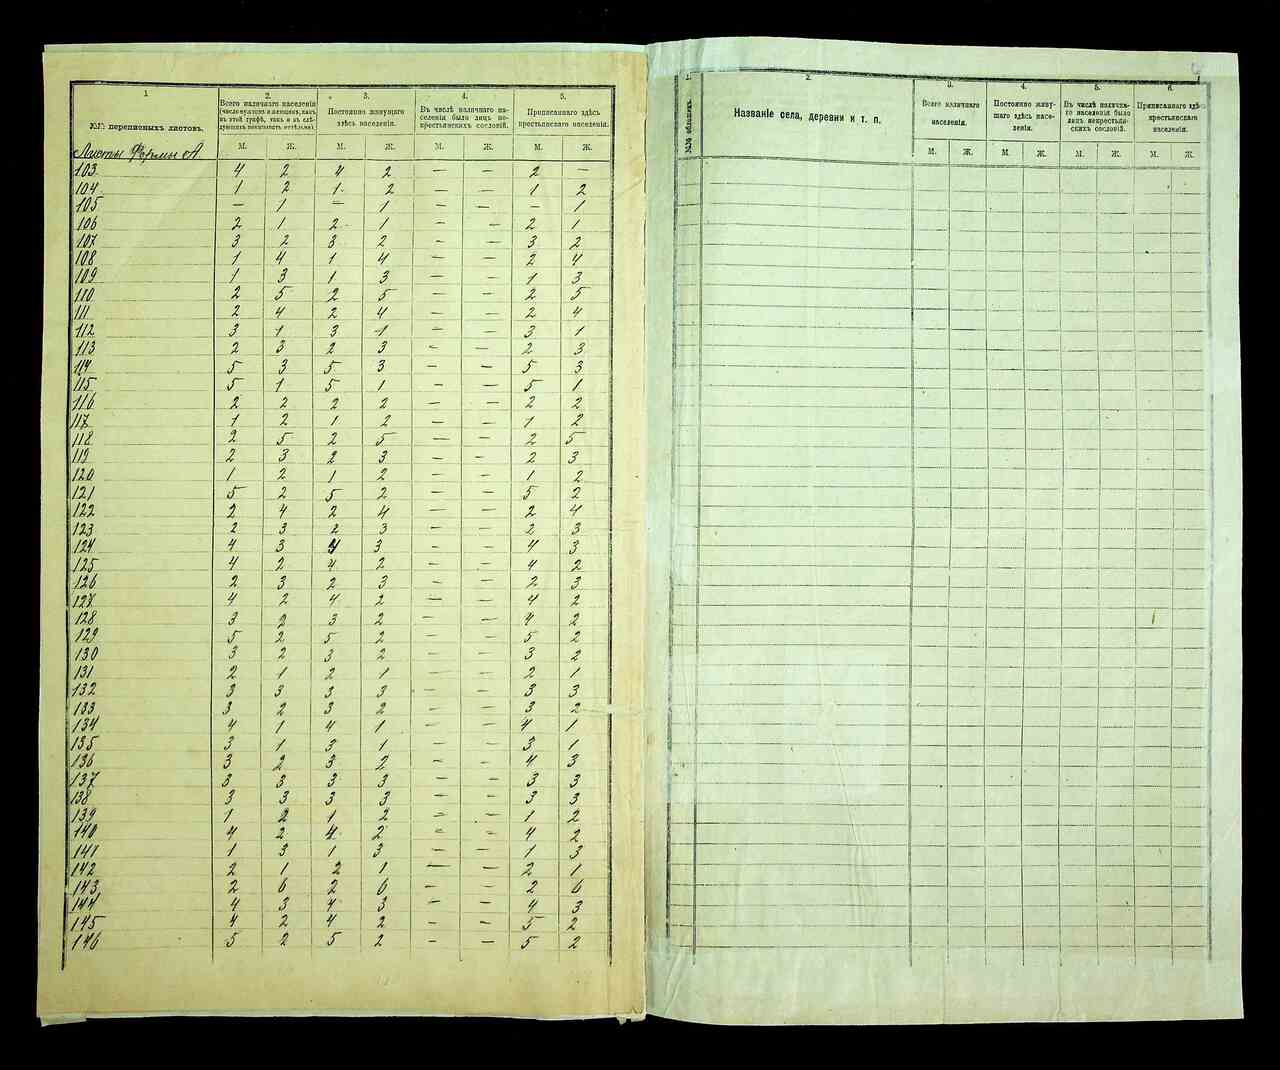 1
№№ переписныхъ листовъ.
2.
Всего наличнаго населенія
(число мужчинъ и женщинъ, какъ
въ этой графѣ, такъ и въ слѣ-
дующихъ показывать отдѣльно)
3.
Постоянно живущаго
здѣсь населенія.
4.
Въ числѣ наличнаго на-
селенія было лицъ не-
крестьянскихъ сословій.
5.
Приписаннаго здѣсь
крестьянскаго населенія.
М. Ж. М. Ж. М. Ж. М. Ж.
Листы Формы А.
103 4 2 4 2 — — 2 —
104 1 2 1 2 — — 1 2
105 — 1 — 1 — — — 1
106 2 1 2 1 — — 2 1
107 3 2 3 2 — — 3 2
108 1 4 1 4 — — 2 4
109 1 3 1 3 — — 1 3
110 2 5 2 5 — — 2 5
111 2 4 2 4 — — 2 4
112 3 1 3 1 — — 3 1
113 2 3 2 3 — — 2 3
114 5 3 5 3 — — 5 3
115 5 1 5 1 — — 5 1
116 2 2 2 2 — — 2 2
117 1 2 1 2 — — 1 2
118 2 5 2 5 — — 2 5
119 2 3 2 3 — — 2 3
120 1 2 1 2 — — 1 2
121 5 2 5 2 — — 5 2
122 2 4 2 4 — — 2 4
123 2 3 2 3 — — 2 3
124 4 3 4 3 — — 4 3
125 4 2 4 2 — — 4 2
126 2 3 2 3 — — 2 3
127 4 2 4 2 — — 4 2
128 3 2 3 2 — — 4 2
129 5 2 5 2 — — 5 2
130 3 2 3 2 — — 3 2
131 2 1 2 1 — — 2 1
132 3 3 3 3 — — 3 3
133 3 2 3 2 — — 3 2
134 4 1 4 1 — — 4 1
135 3 1 3 1 — — 3 1
136 3 2 3 2 — — 4 3
137 3 3 3 3 — — 3 3
138 3 3 3 3 — — 3 3
139 1 2 1 2 — — 1 2
140 4 2 4 2 — — 4 2
141 1 3 1 3 — — 1 3
142 2 1 2 1 — — 2 1
143 2 6 2 6 — — 2 6
144 4 3 4 3 — — 4 3
145 4 2 4 2 — — 5 2
146 5 2 5 2 — — 5 2
1.
2.
Названіе села, деревни и т. п.
3.
Всего наличнаго
населенія.
4.
Постоянно живу-
щаго здѣсь насе-
ленія.
5.
Въ числѣ наличнa-
го населенія было
лицъ некрестьян-
скихъ сословій.
6.
Приписаннаго здѣсь
крестьянскаго
населенія.
М. Ж. М. Ж. М. Ж. М. Ж.